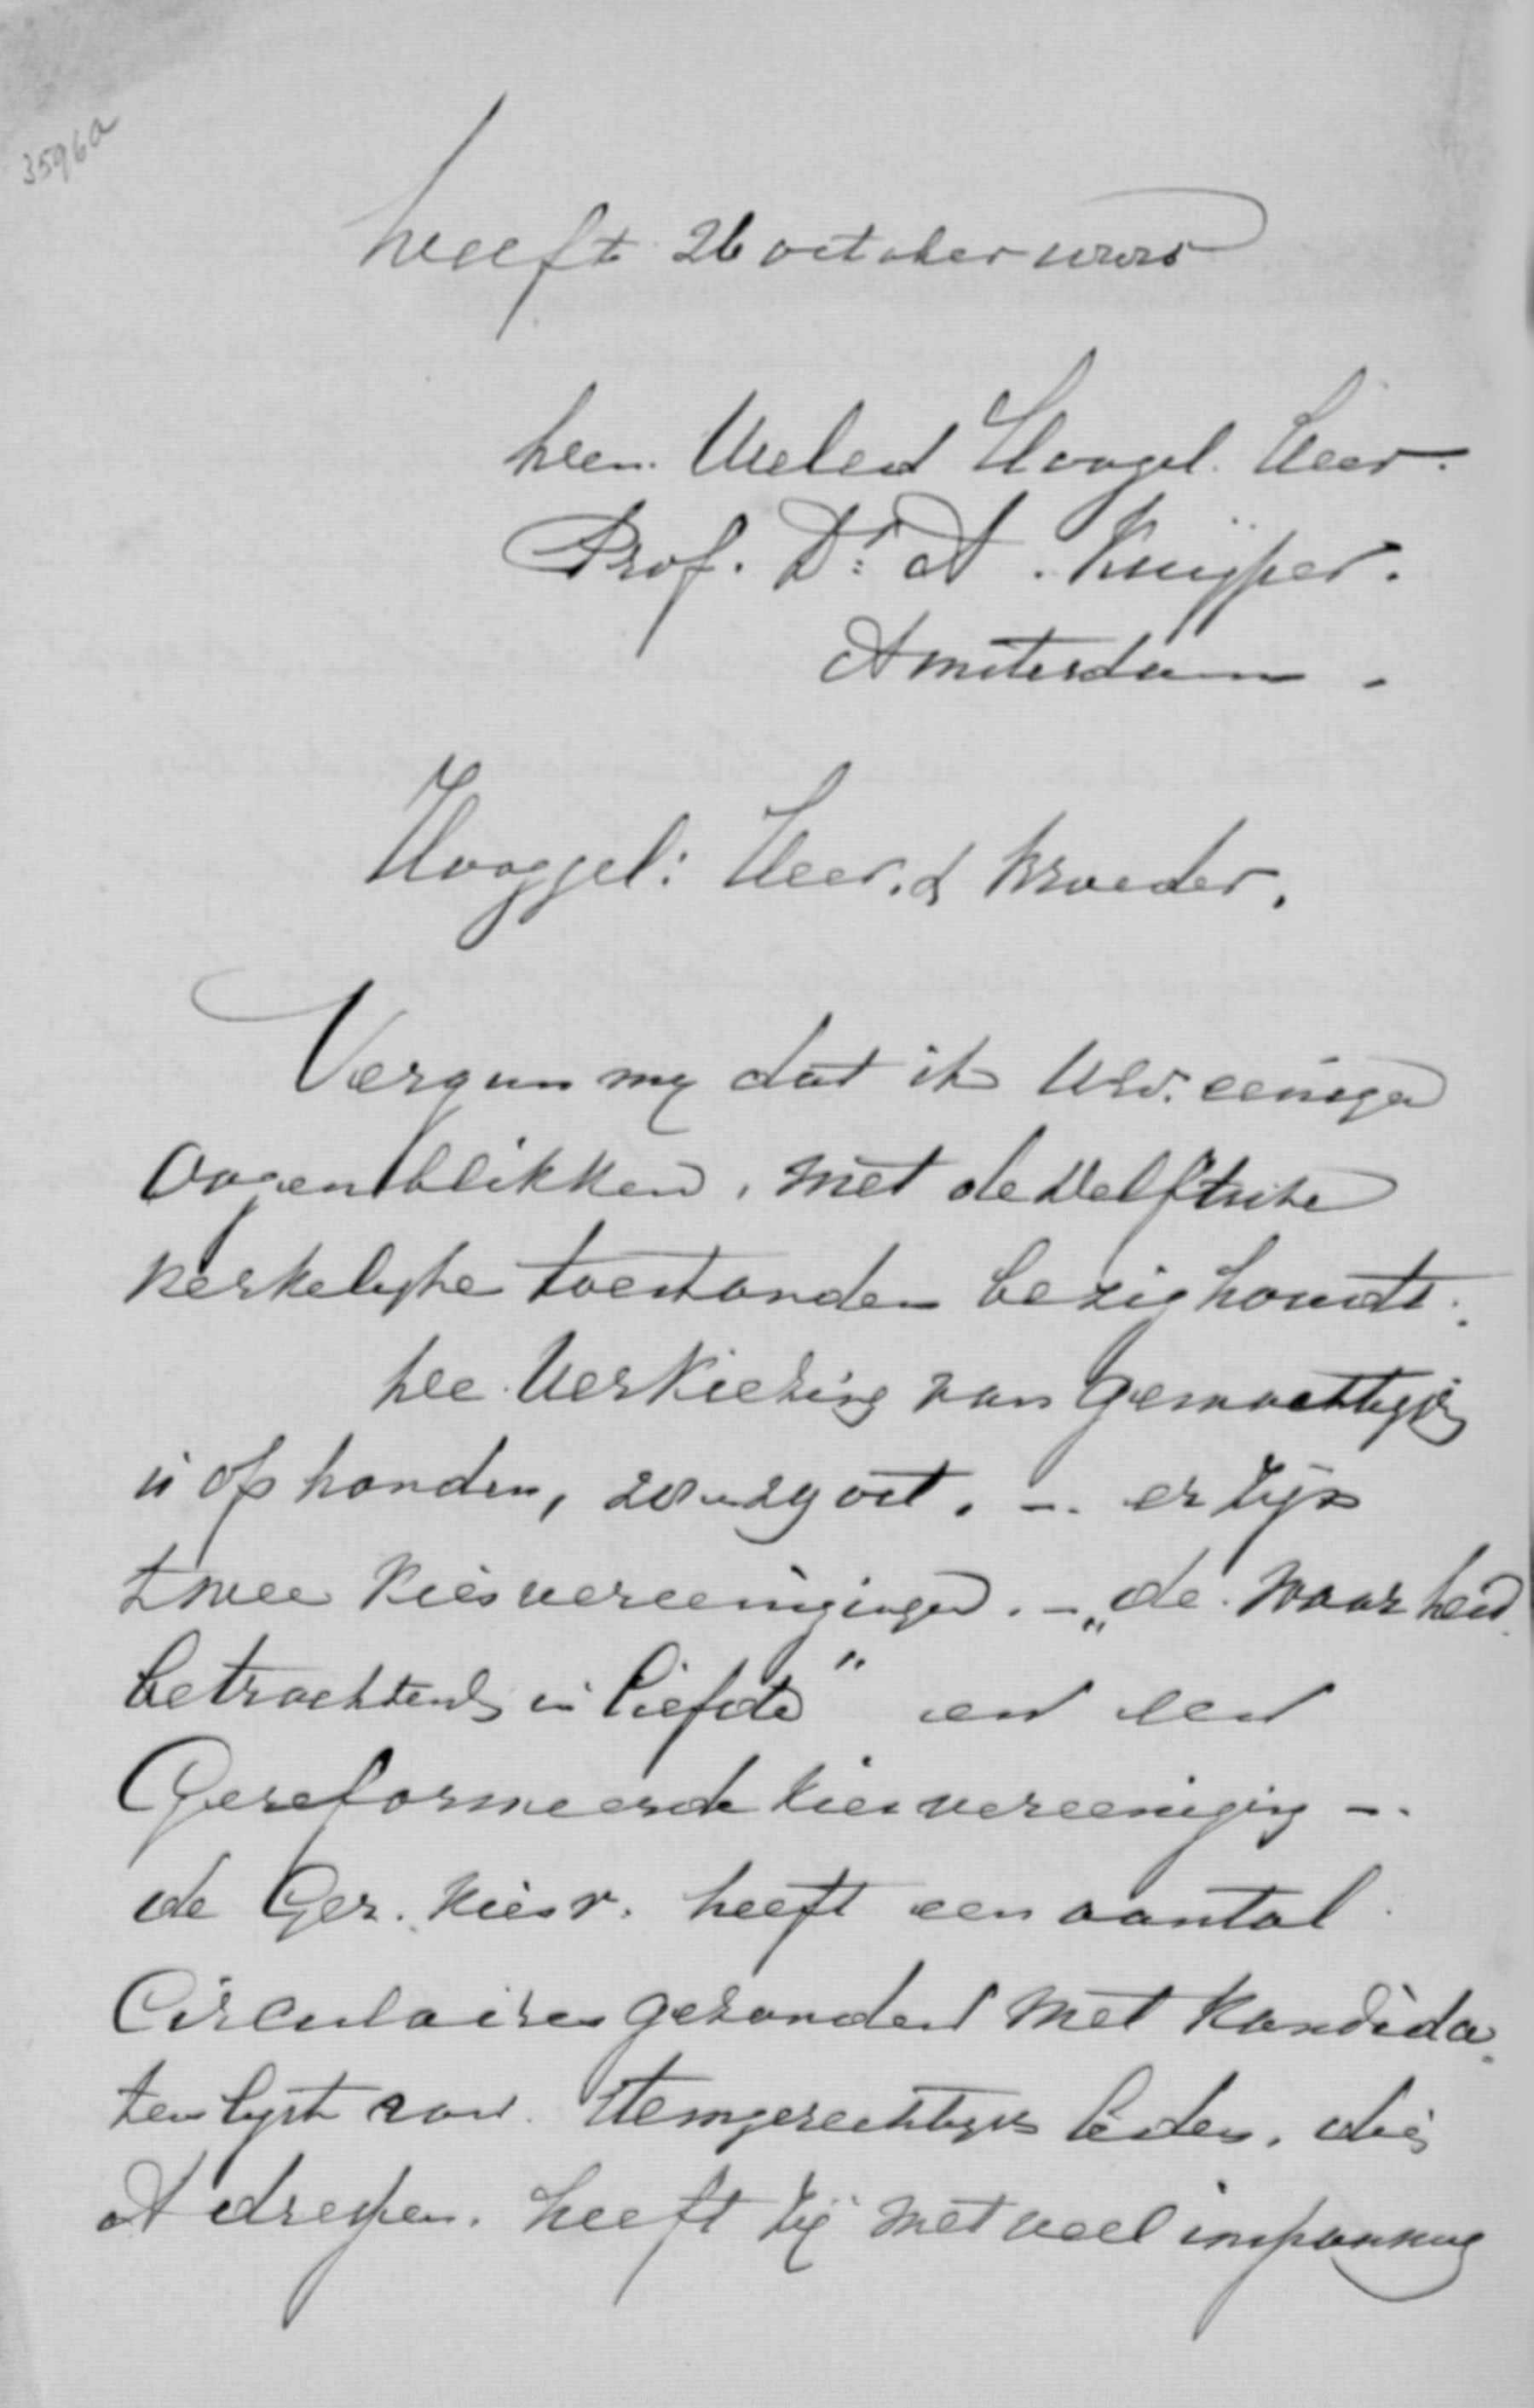 3596a
Delft 26 october 1885
Den Weled Hoogel. Heer
Prof. Dr. A. Kuijper.
Amsterdam.
Hooggel: Heer. & Broeder.
Vergun my dat ik UEd. eenige
oogenblikken, met de Delftsche
kerkelyke toestanden bezig houdt.
De Verkiezing van gemachtigden
is op handen, 28 en 29 oct. – er zyn
twee kiesvereenigingen. – „de Waarheid
betrachtende in liefde" en een
Gereformeerde kiesvereeniging –.
de Ger. kiesv. heeft een aantal
Circulaires gezonden met kandida
tenlyst aan stemgerechtigde leden. die
Adressen. heeft zy met veel inspanning